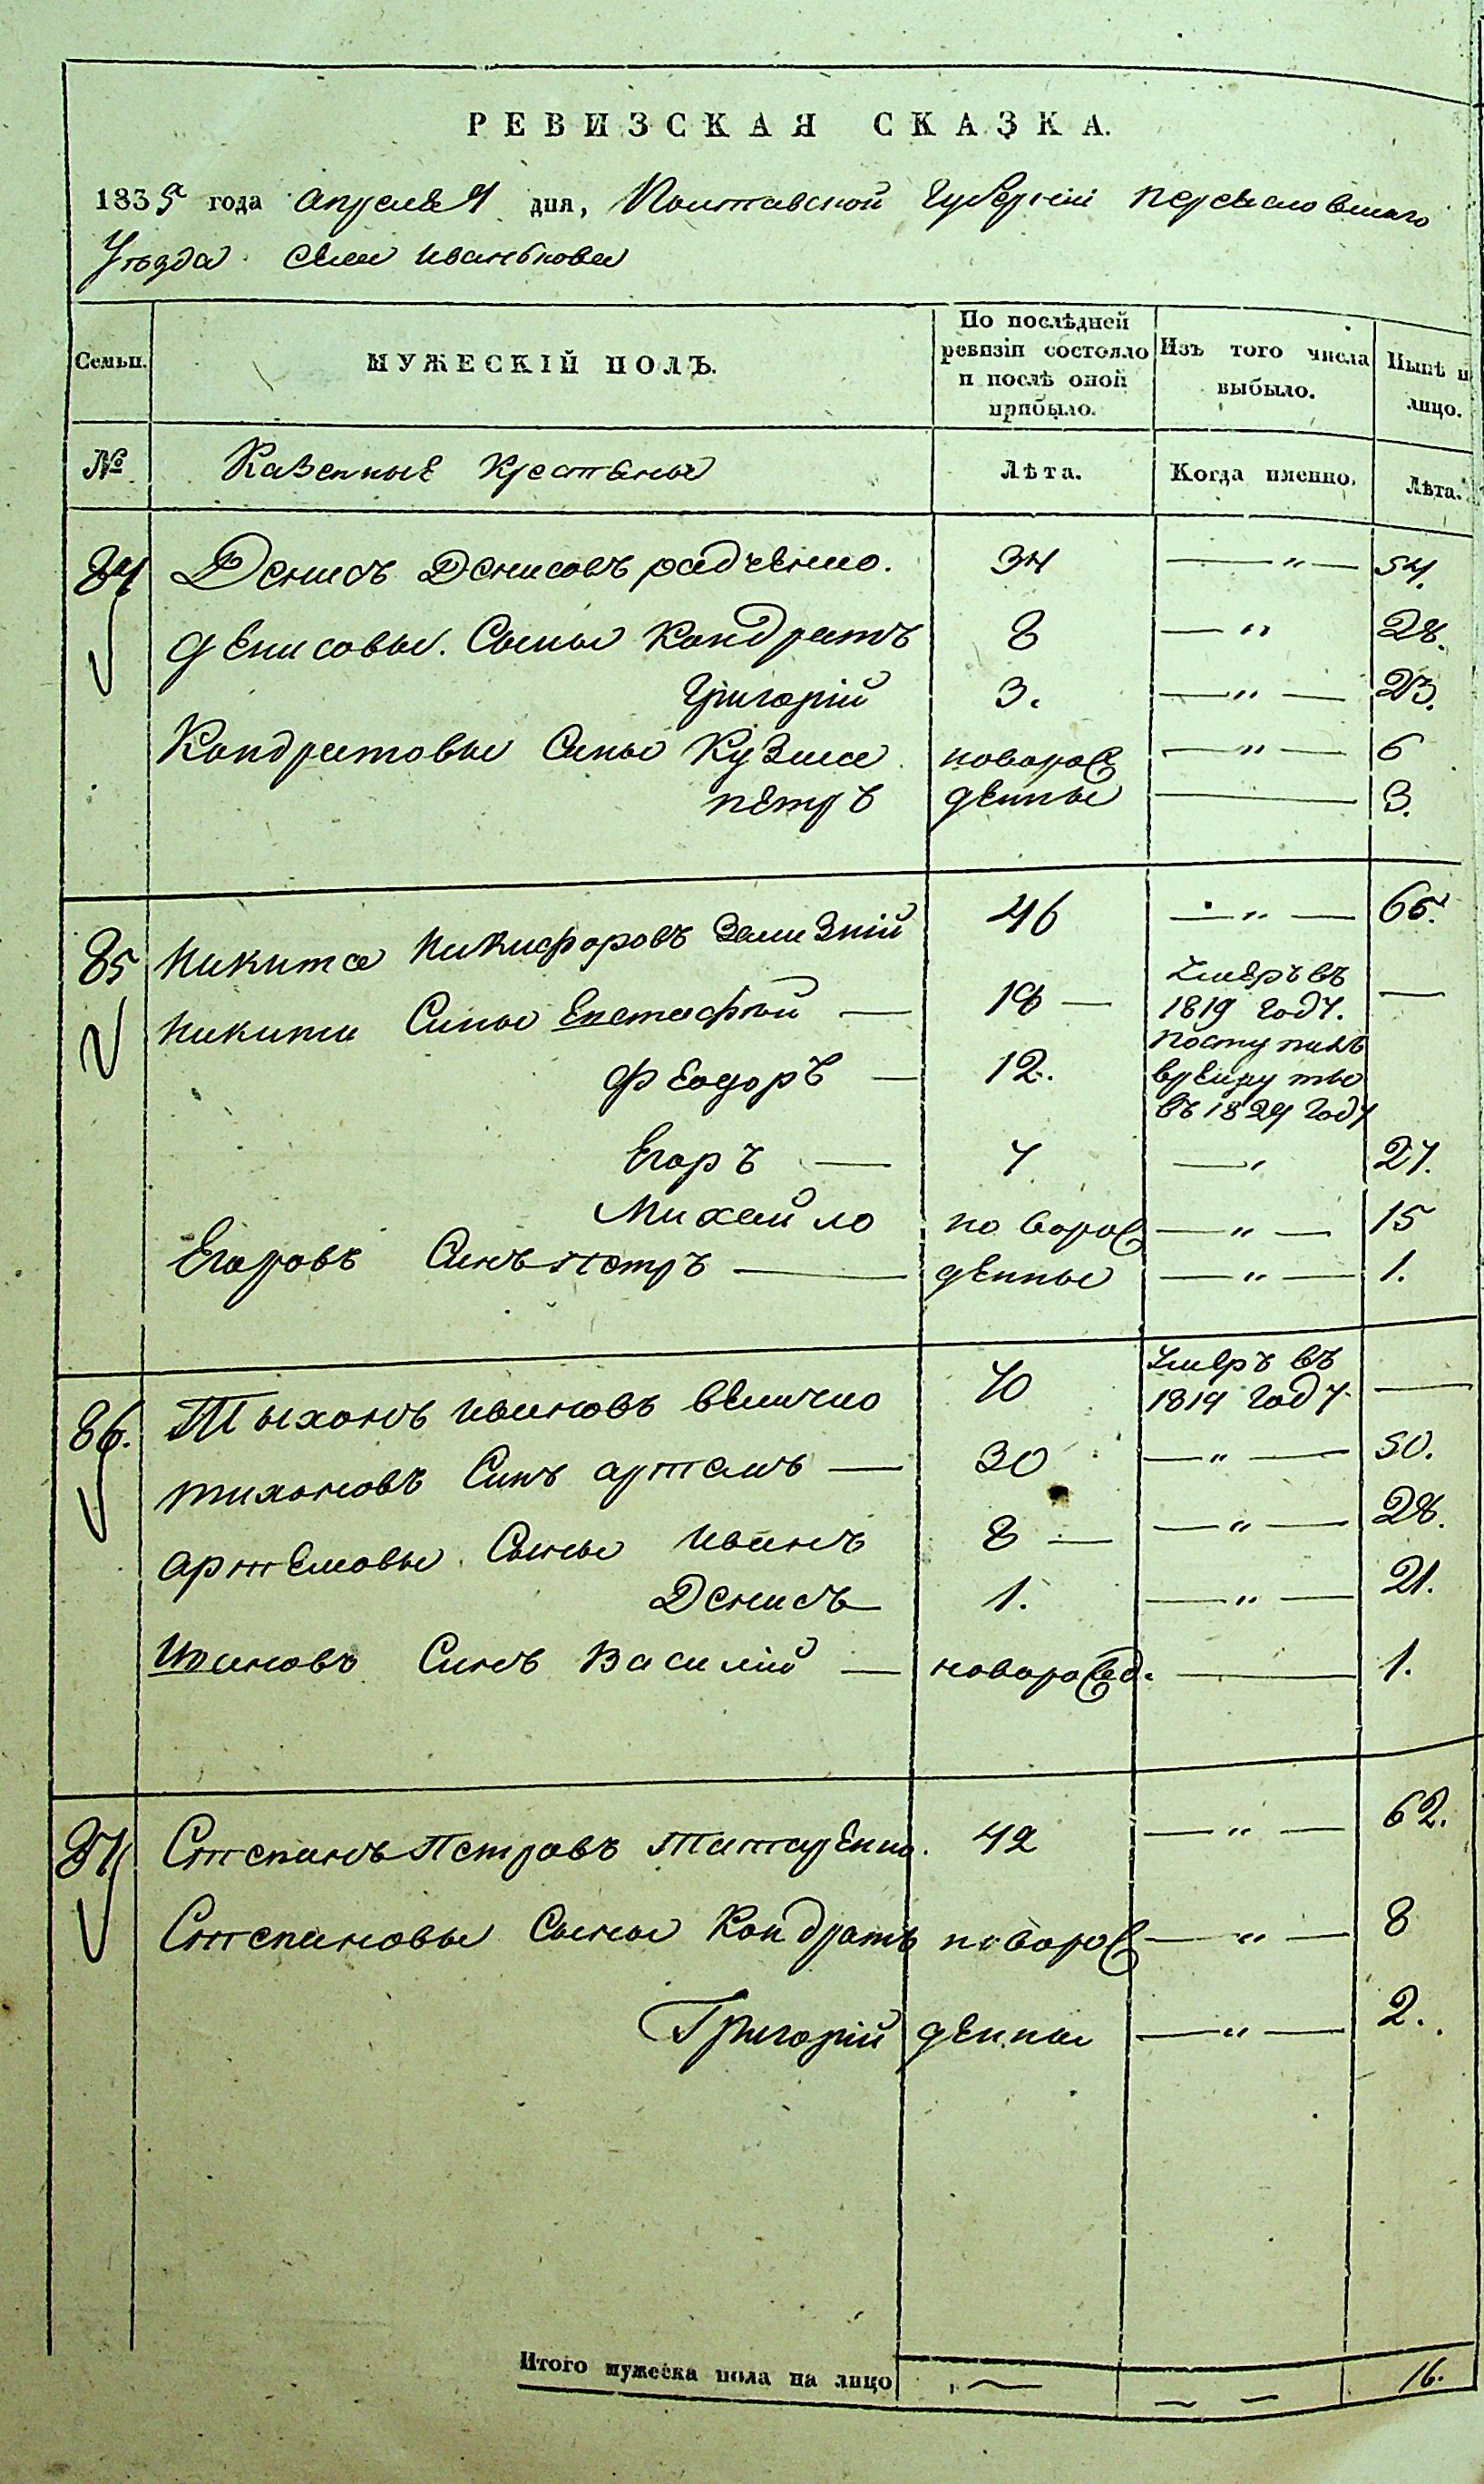 РЕВИЗСКАЯ СКАЗКА.
1835 года апреля дня, Полтавской Губерніи переяславскаго
Уѣзда села иванькова
Семьи. МУЖЕСКІЙ ПОЛЪ. По послѣдней ревизіи состояло и послѣ оной прибыло. Изъ того числа выбыло. Нынѣ на лицо.
№ Казенные Крестьяне Лѣта. Когда именно. Лѣта.
84 Денисъ Денисовъ радченко. 34 — „ — 54.
денисовы. Сыны Кондратъ 8 — „ 28.
Григорій 3. — „ — 23.
Кондратовы Сины Кузма новорож — „ — 6
петръ денные — 3.
85 Никита Никифоровъ Зализній 46 — „ — 66.
Никиты Сины Евстафий — 18 — Умеръ въ 1819 году. —
Феодоръ — 12. поступилъ в рекруты въ 1829 году
Егоръ — 7 — „ 27.
Михайло новорож — „ — 15
Егоровъ Синъ петръ — денные — „ — 1.
86. Тыхонъ ивановъ величко 70 Умеръ въ 1819 году —
тихоновъ Синъ артемъ — 30 — „ — 50.
артемовы Сыны иванъ 8 — — „ — 28.
Денисъ 1. — „ — 21.
Ивановъ Синъ Василій — новорожд. — 1.
87 Степанъ Петровъ Титаренко. 42 — „ — 62.
Степановы Сыны Кондратъ новорож — „ — 8
Григорій денные — „ — 2.
Итого мужеска пола на лицо — — — 16.